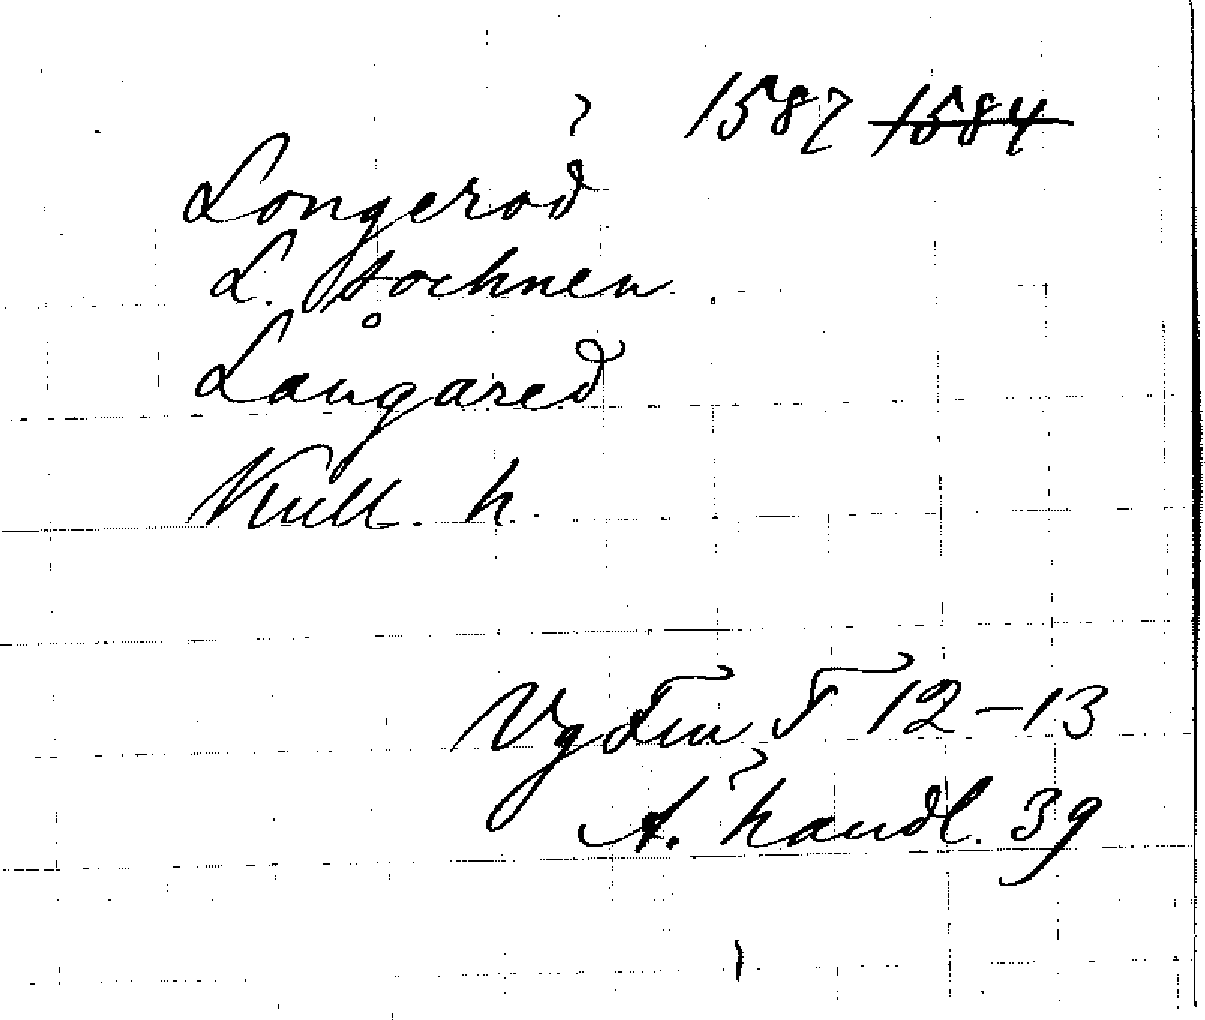 1587 1584
Longerod
L. Sochnen
Långared
Kull. h.
Vg 12-13
A. handl. 39